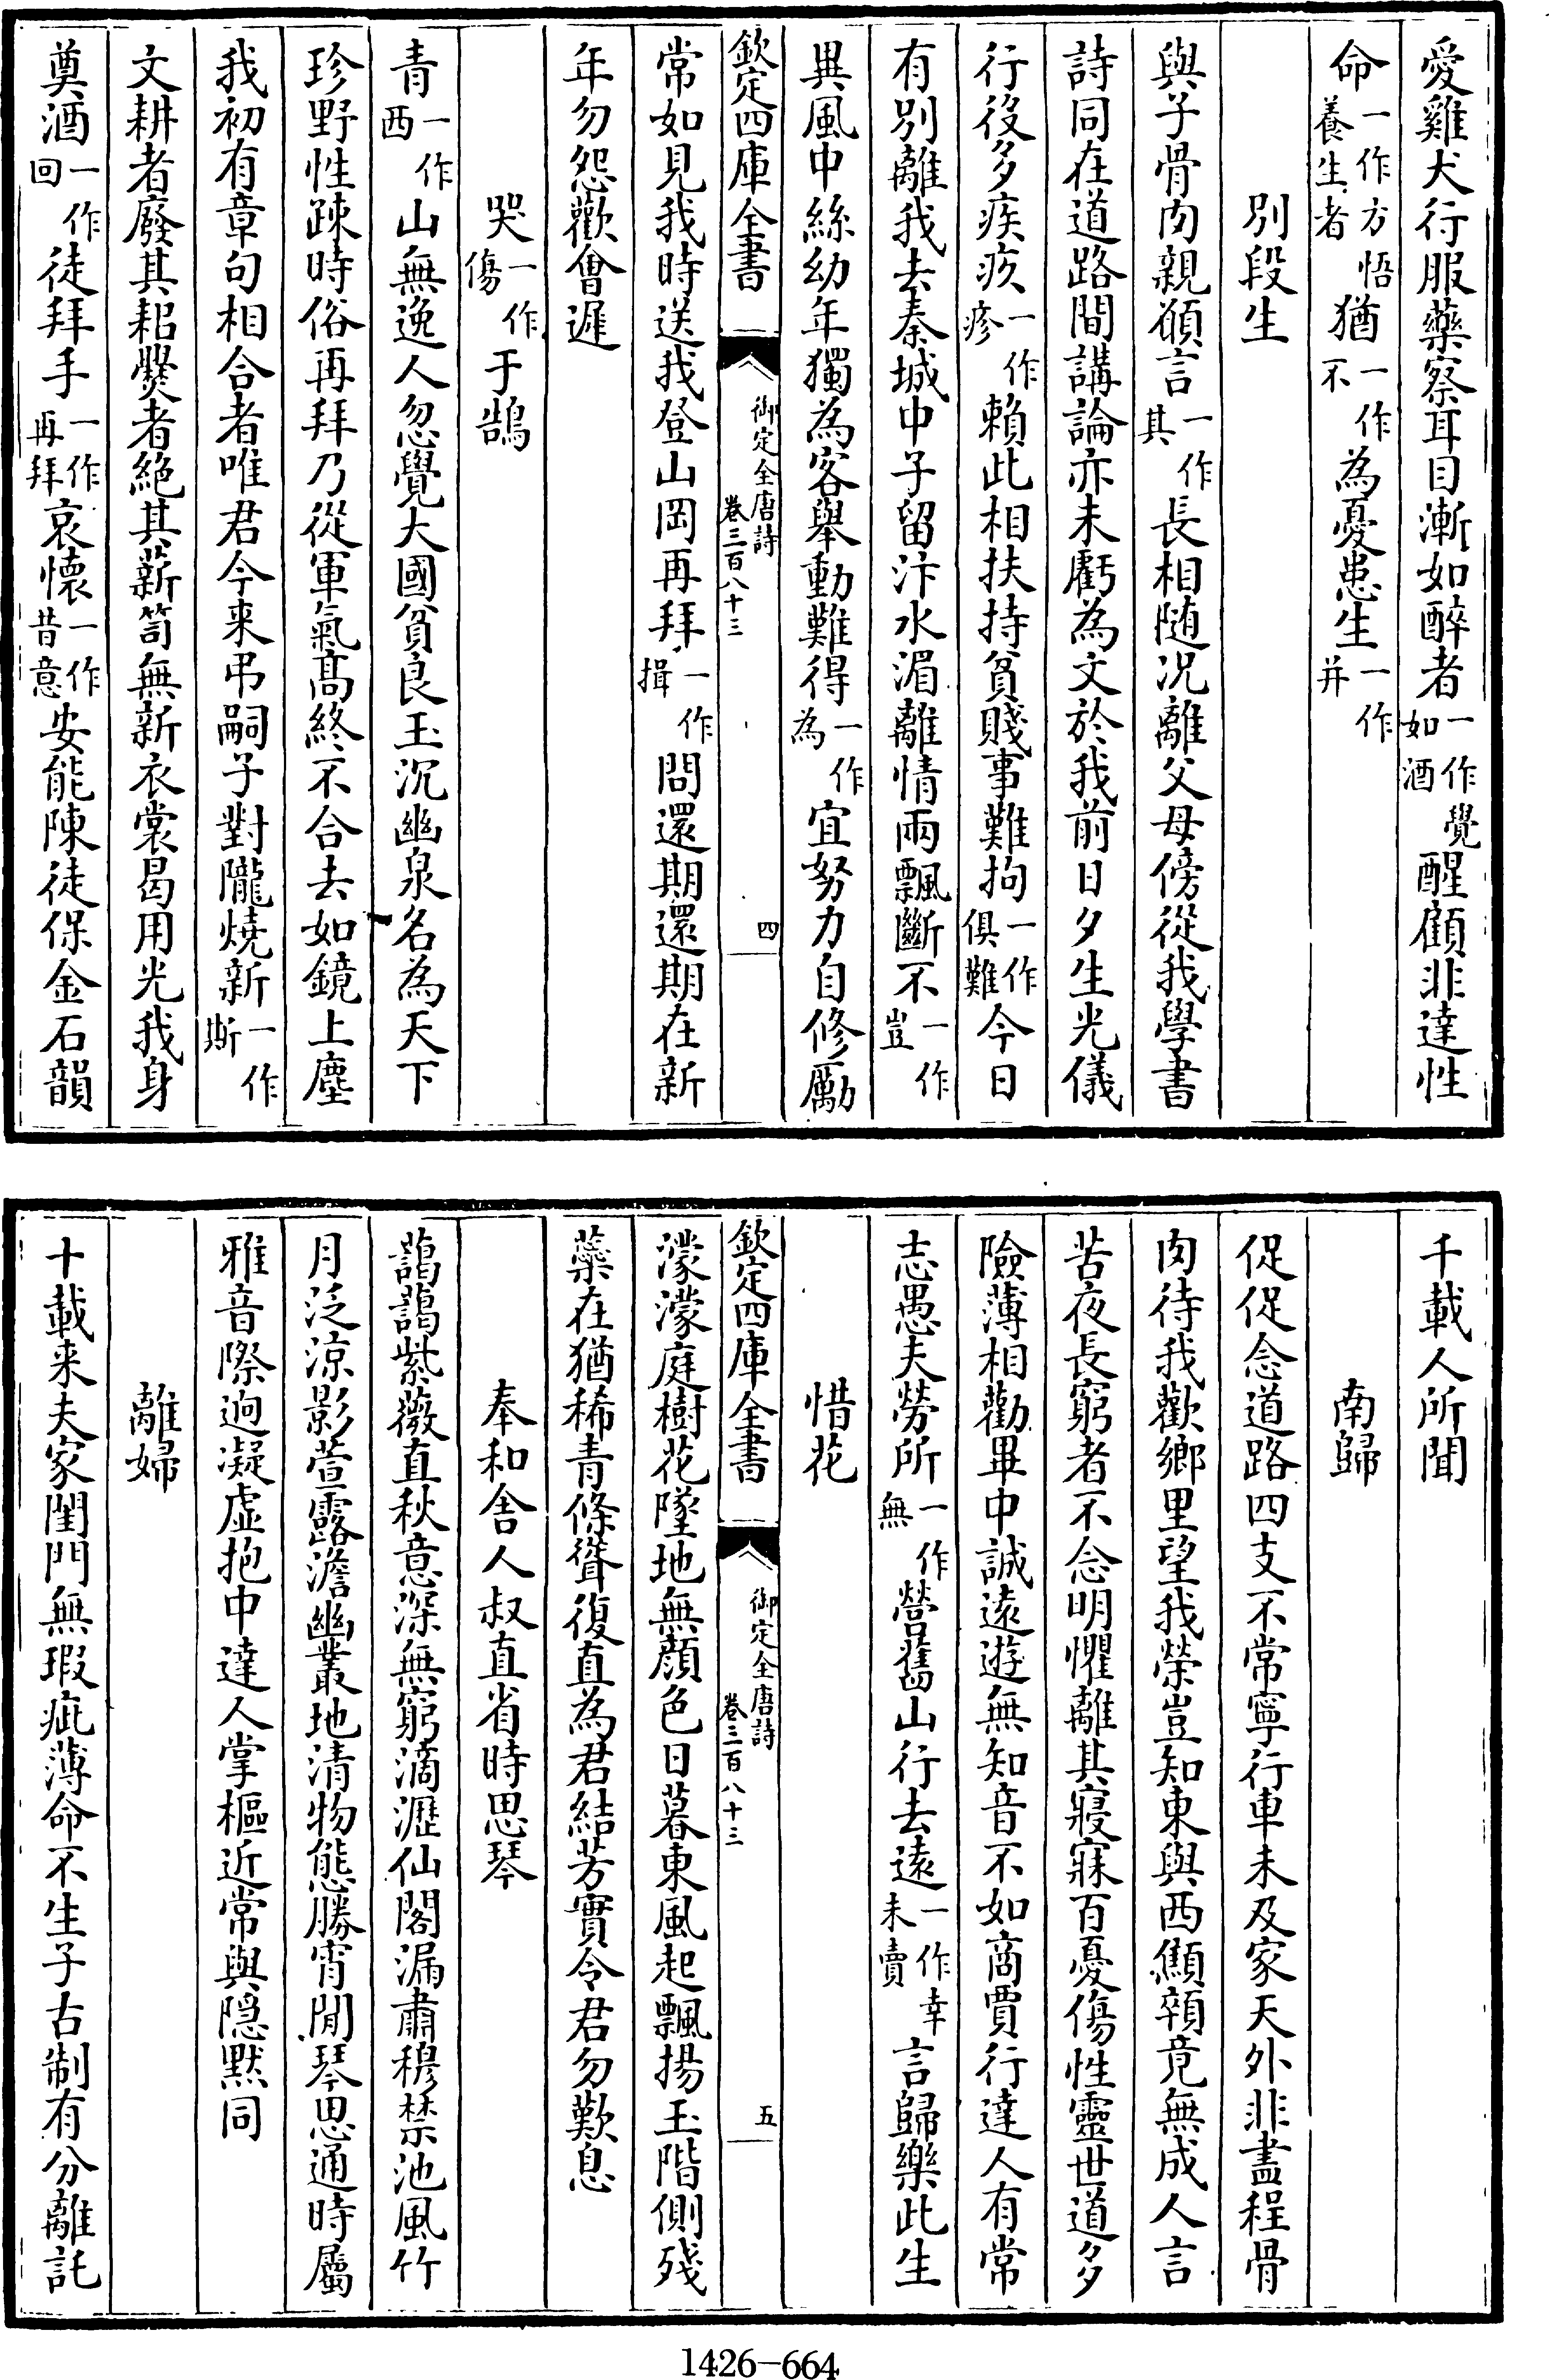 愛雞犬行服藥察耳目漸如醉者一作覺如酒醒顧非達性
命一作方悟養生者猶一作不為憂患生一作并
別段生
與子骨肉親願言一作其長相随况離父母傍從我學書
詩同在道路間講論亦未虧為文於我前日夕生光儀
行役多疾疚一作疹賴此相扶持貧賤事難拘一作俱難今日
有別離我去秦城中子留汴水湄離情兩飄斷不一作豈
異風中絲幼年獨為客舉動難得一作為宜努力自修勵
欽定四庫全書 御定全唐詩 卷三百八十三 四
常如見我時送我登山岡再拜一作揖問還期還期在新
年勿怨歡會遲
哭一作傷于鵠
青一作西山無逸人忽覺大國貧良玉沉幽泉名為天下
珍野性疎時俗再拜乃從軍氣髙終不合去如鏡上塵
我初有章句相合者唯君今来弔嗣子對隴燒新一作斯
文耕者廢其耜爨者絶其薪笥無新衣裳曷用光我身
奠酒一作回徒拜手一作再拜哀懷一作昔意安能陳徒保金石韻
千載人所聞
南歸
促促念道路四支不常寧行車未及家天外非盡程骨
肉待我歡鄉里望我榮豈知東與西顦顇竟無成人言
苦夜長窮者不念明懼離其寢寐百憂傷性靈世道多
險薄相勸畢中誠遠遊無知音不如商賈行達人有常
志愚夫勞所一作無營舊山行去遠一作幸未賣言歸樂此生
惜花
欽定四庫全書 御定全唐詩 卷三百八十三 五
濛濛庭樹花墜地無顔色日暮東風起飄揚玉階側殘
蘂在猶稀青條聳復直為君結芳實令君勿歎息
奉和舎人叔直省時思琴
藹藹紫薇直秋意深無窮滴瀝仙閣漏肅穆禁池風竹
月泛涼影萱露澹幽叢地清物態勝宵閒琴思通時屬
雅音際迥凝虚抱中達人掌樞近常與隠黙同
離婦
十載来夫家閨門無瑕疵薄命不生子古制有分離託
1426-664